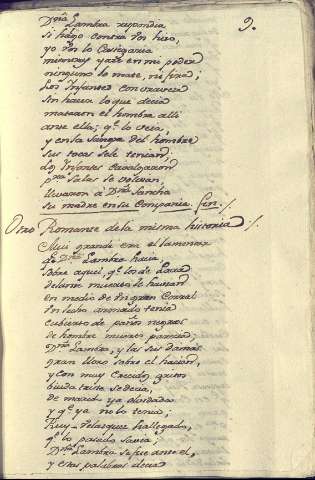 9.
Dña Lambra respondia
si hizo contra vos hizo,
yo vos lo Castigaria
mientras yaze en mi poder
ninguno lo mate, ni fira;
Los Infantes con crueza
sin hacer lo que decia
mataron el hombre alli
ante ella; q.e lo veia,
y en la Sangre del hombre
sus tocas se le tenian.
Los Infantes Cavalgaron
para Salas se volvian
llevaron a Dña Sancha
su madre en su Compania. fin.
Otro Romance de la misma historia
Mui grande era el lamentar
que Dña Lambra hacia,
sobre aquel, q.e los de Lara
delante muerto le havian
en medio de un gran Corral
Un lecho armado tenia
cubierto de paños negros
de hombre muerto parecia;
Dña Lambra, y las sus damas
gran lloro sobre el hacian,
y con muy crecidos gritos
biuda triste se decia,
de marido ya olvidada
y q.e ya no lo tenia;
Ruy-Velazquez ha llegado,
q.e lo pasado savia;
Dña Lambra se fue ante el,
y estas palabras decia